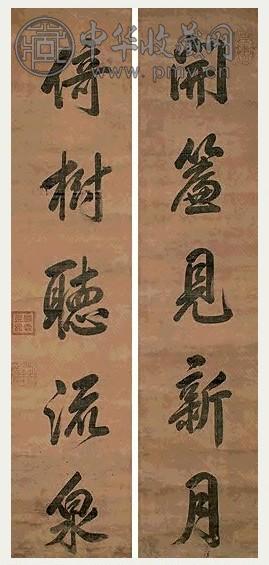 中华收藏网
www.pmv.cn
開簾見新月
倚樹聽流泉